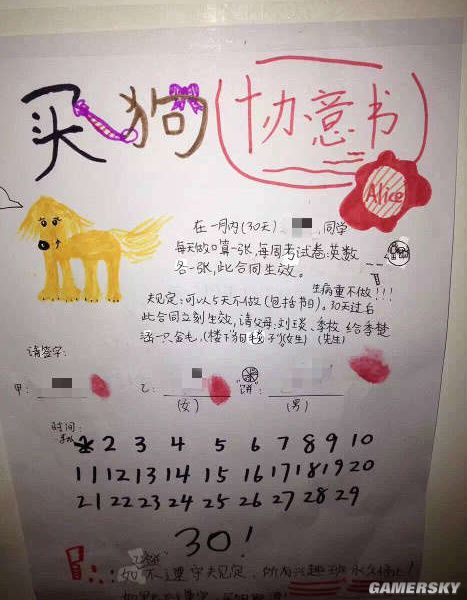 买狗协意书
Alice
在一月内(30天),同学
每天做口算一张,每周考试卷:英数
各一张,此合同生效。
生病重不做!!!
夫见定:可以5天不做(包括节日)。30天过后
此合同立刻生效,请父母:刘琰、李牧 给李楚
涵一只金毛,(楼下狗 (女生) (先生)
请签字:
甲: 乙: 饼:
(女) (男)
时间:
2 3 4 5 6 7 8 9 10
11 12 13 14 15 16 17 18 19 20
21 22 23 24 25 26 27 28 29
30!
如不遵守夫见定,所有兴趣班永久停止!
GAMERSKY